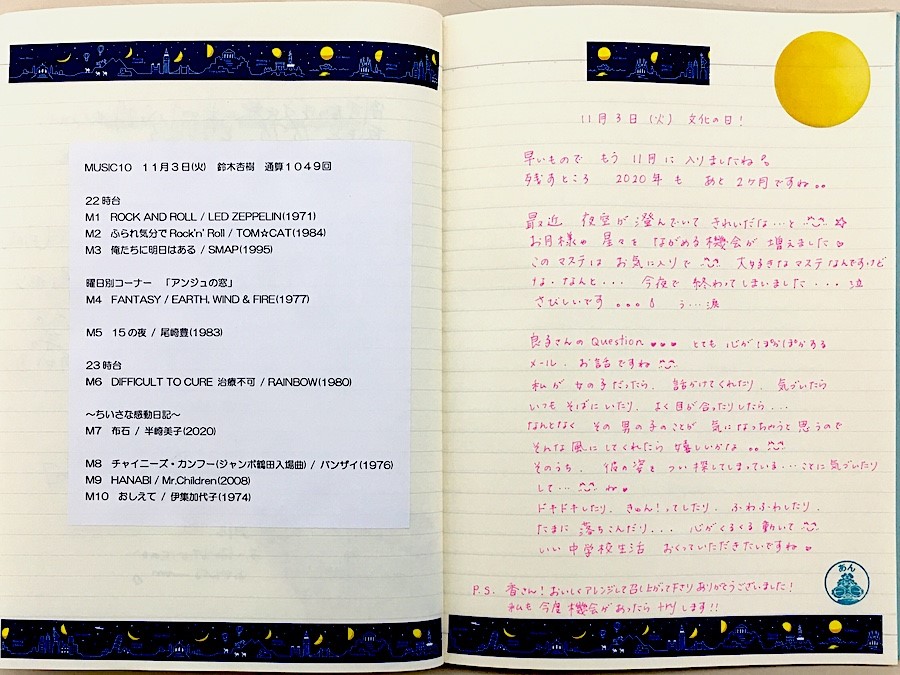 MUSIC10 11月3日(火) 鈴木杏樹 通算1049回
22時台
M1 ROCK AND ROLL / LED ZEPPELIN(1971)
M2 ふられ気分でRock'n' Roll / TOM☆CAT(1984)
M3 俺たちに明日はある / SMAP(1995)
曜日別コーナー 「アンジュの窓」
M4 FANTASY / EARTH, WIND & FIRE(1977)
M5 15の夜 / 尾崎豊(1983)
23時台
M6 DIFFICULT TO CURE 治療不可 / RAINBOW(1980)
～ちいさな感動日記～
M7 布石 / 半崎美子(2020)
M8 チャイニーズ・カンフー(ジャンボ鶴田入場曲) / バンザイ(1976)
M9 HANABI / Mr.Children(2008)
M10 おしえて / 伊集加代子(1974)
11月3日(火) 文化の日!
早いもので もう 11月に 入りましたね
残すところ 2020年も あと 2ヶ月ですね。。
最近 夜空が 澄んでいて きれいだな…と ☆
お月様や 星々を ながめる機会が 増えました
このマステは お気に入りで 大好きなマステなんですけど
な・なんと・・・ 今夜で 終わってしまいました・・・泣
さびしいです 。。。 う…涙
良子さんの Question ♥♥♥ とても 心が ぽかぽかする
メール、お話ですね
私が 女の子だったら、話かけてくれたり、気づいたら
いつも そばにいたり、よく目が合ったりしたら...
なんとなく その男の子のことが 気になっちゃうと思うので
そんな風にしてくれたら 嬉しいかな 。。
そのうち、彼の姿を つい探してしまっていま…ことに気づいたり
して… ね♥
ドキドキしたり、きゅん!ってしたり、ふわふわしたり、
たまに 落ちこんだり... 心がくるくる動いて
いい 中学校生活 おくっていただきたいですね
P.S. 香さん!おいしくアレンジして召し上がって下さり ありがとうございました!
私も 今度 機会があったら tryします!!
あん